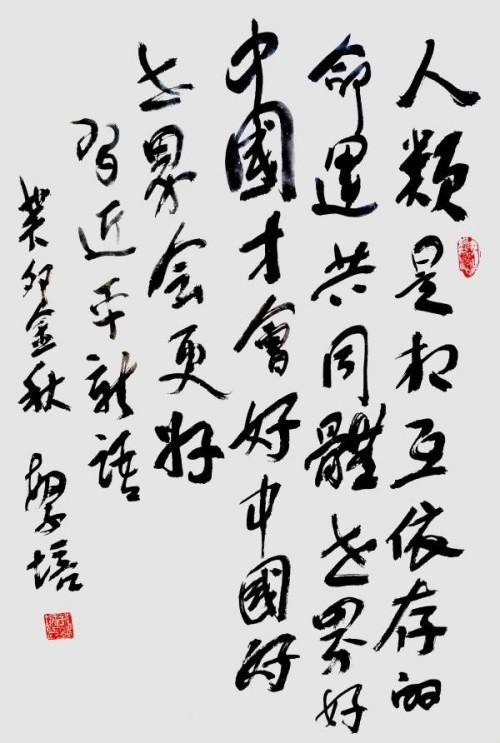 人类是相互依存的
命运共同體世界好
中國才會好中國好
世界会更好
习近平新語
癸卯金秋
培